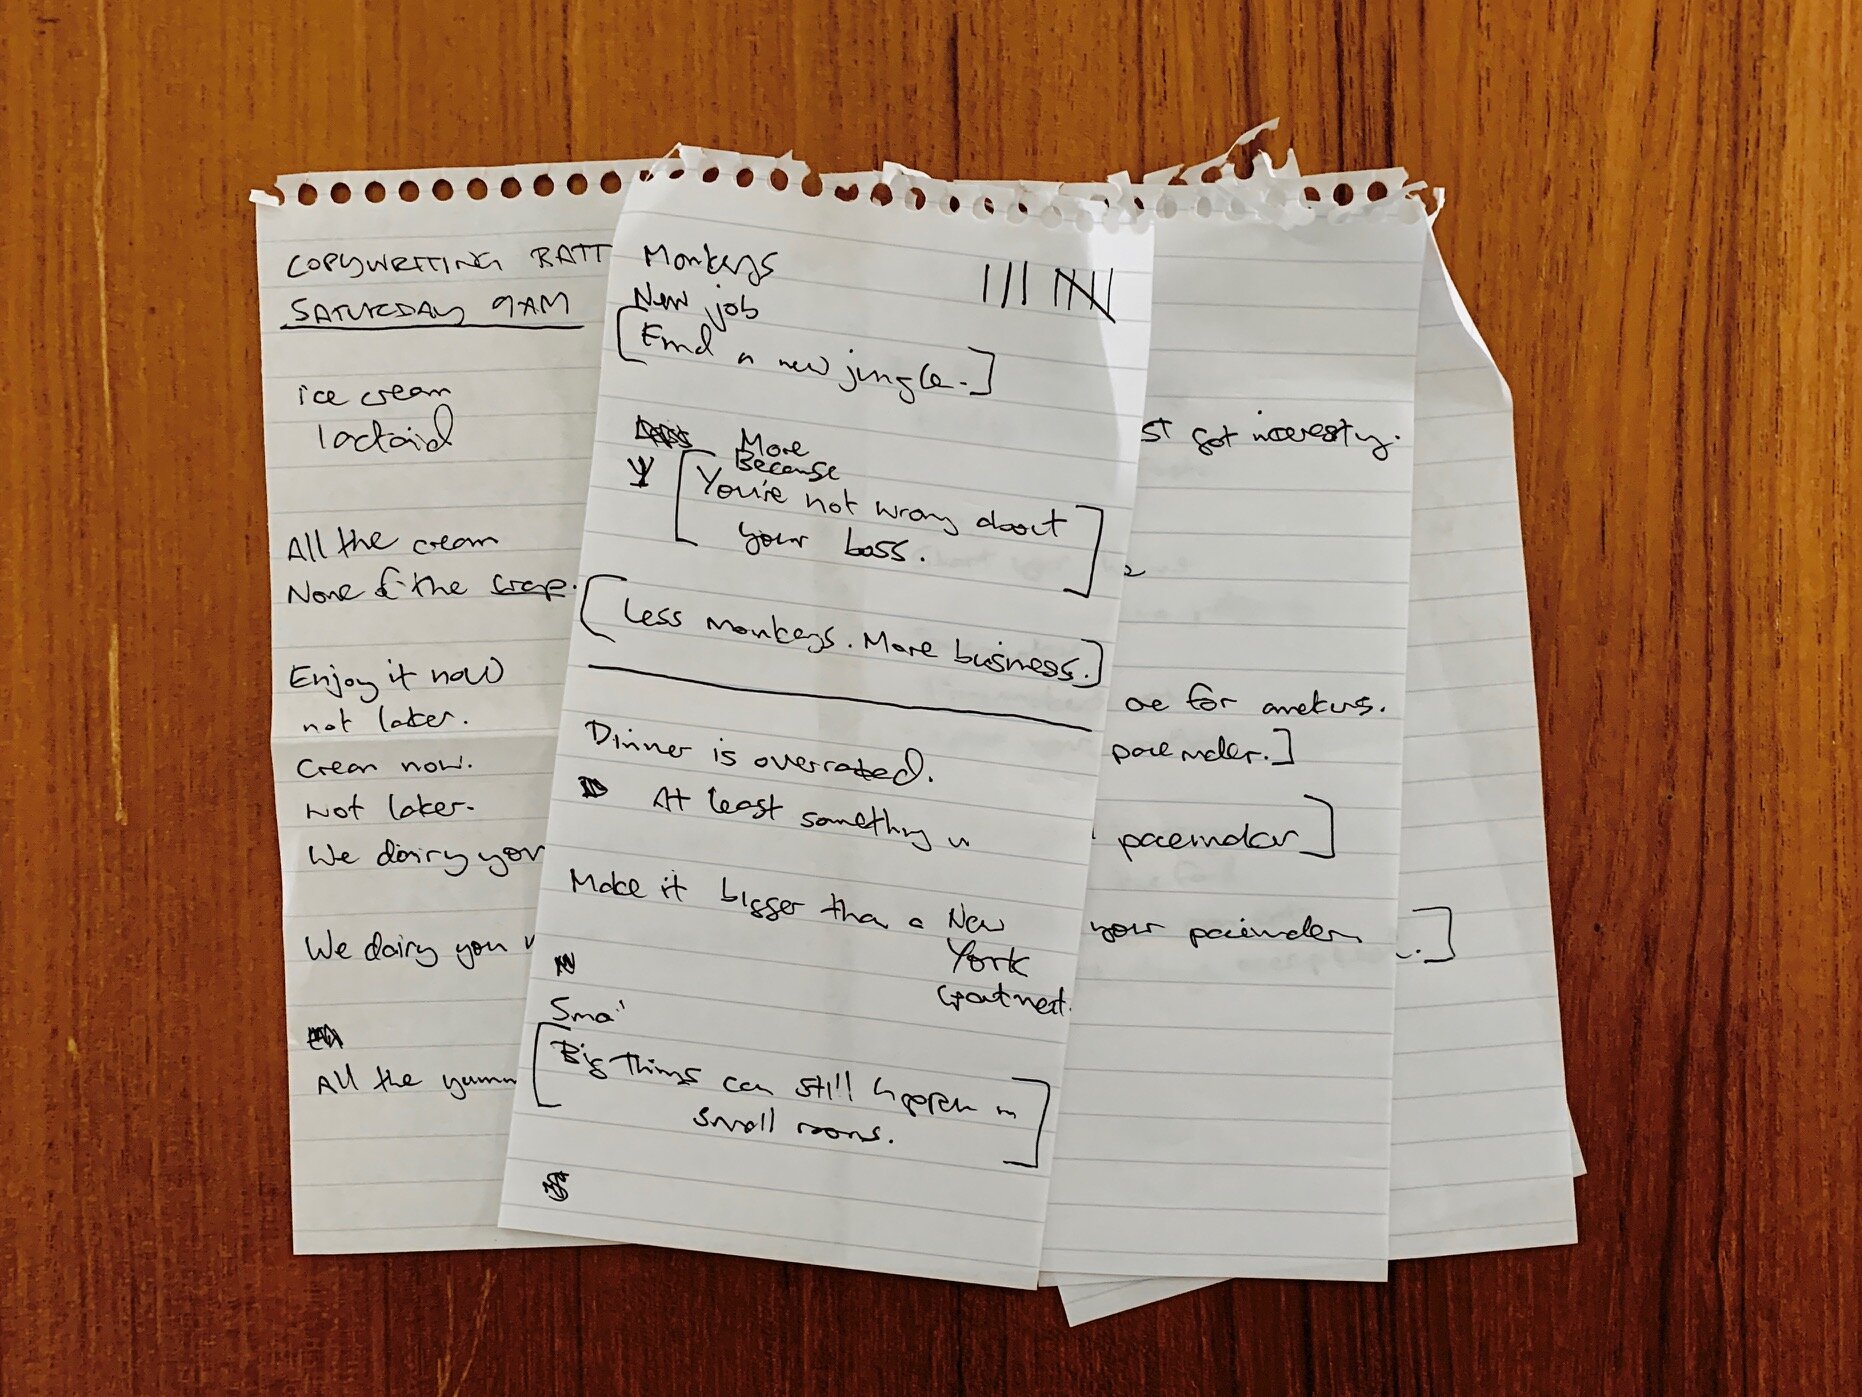 COPYWRITING BATT
SATURDAY 9AM
ice cream
lactaid
All the cream
None of the crap.
Enjoy it now
not later.
Cream now.
Not later.
We dairy you
We dairy you
All the yumm
Monkeys
New job
[Find a new jungle.]
More
Because
[You're not wrong about
your boss.]
[Less monkeys. More business.]
Dinner is overrated.
At least something
Make it bigger than a New
York
apartment.
Smal
[Big things can still happen in
small rooms.]
st got interesting.
are for amateurs.
pacemaker.]
pacemaker]
your pacemaker
.]